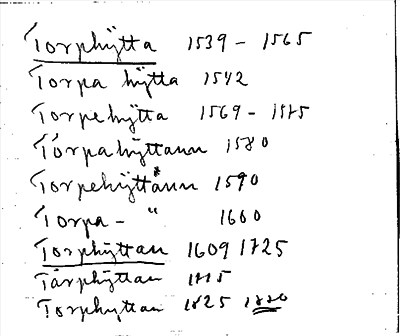 Torphÿtta 1539 - 1565
Torpa hÿtta 1542
Torpe hÿtta 1569 - 1575
Torpahÿttann 1580
Torpehÿttånn 1590
Torpa - " 1600
Torphÿttan 1609 1725
Tårphÿttan
Torphyttan 1825